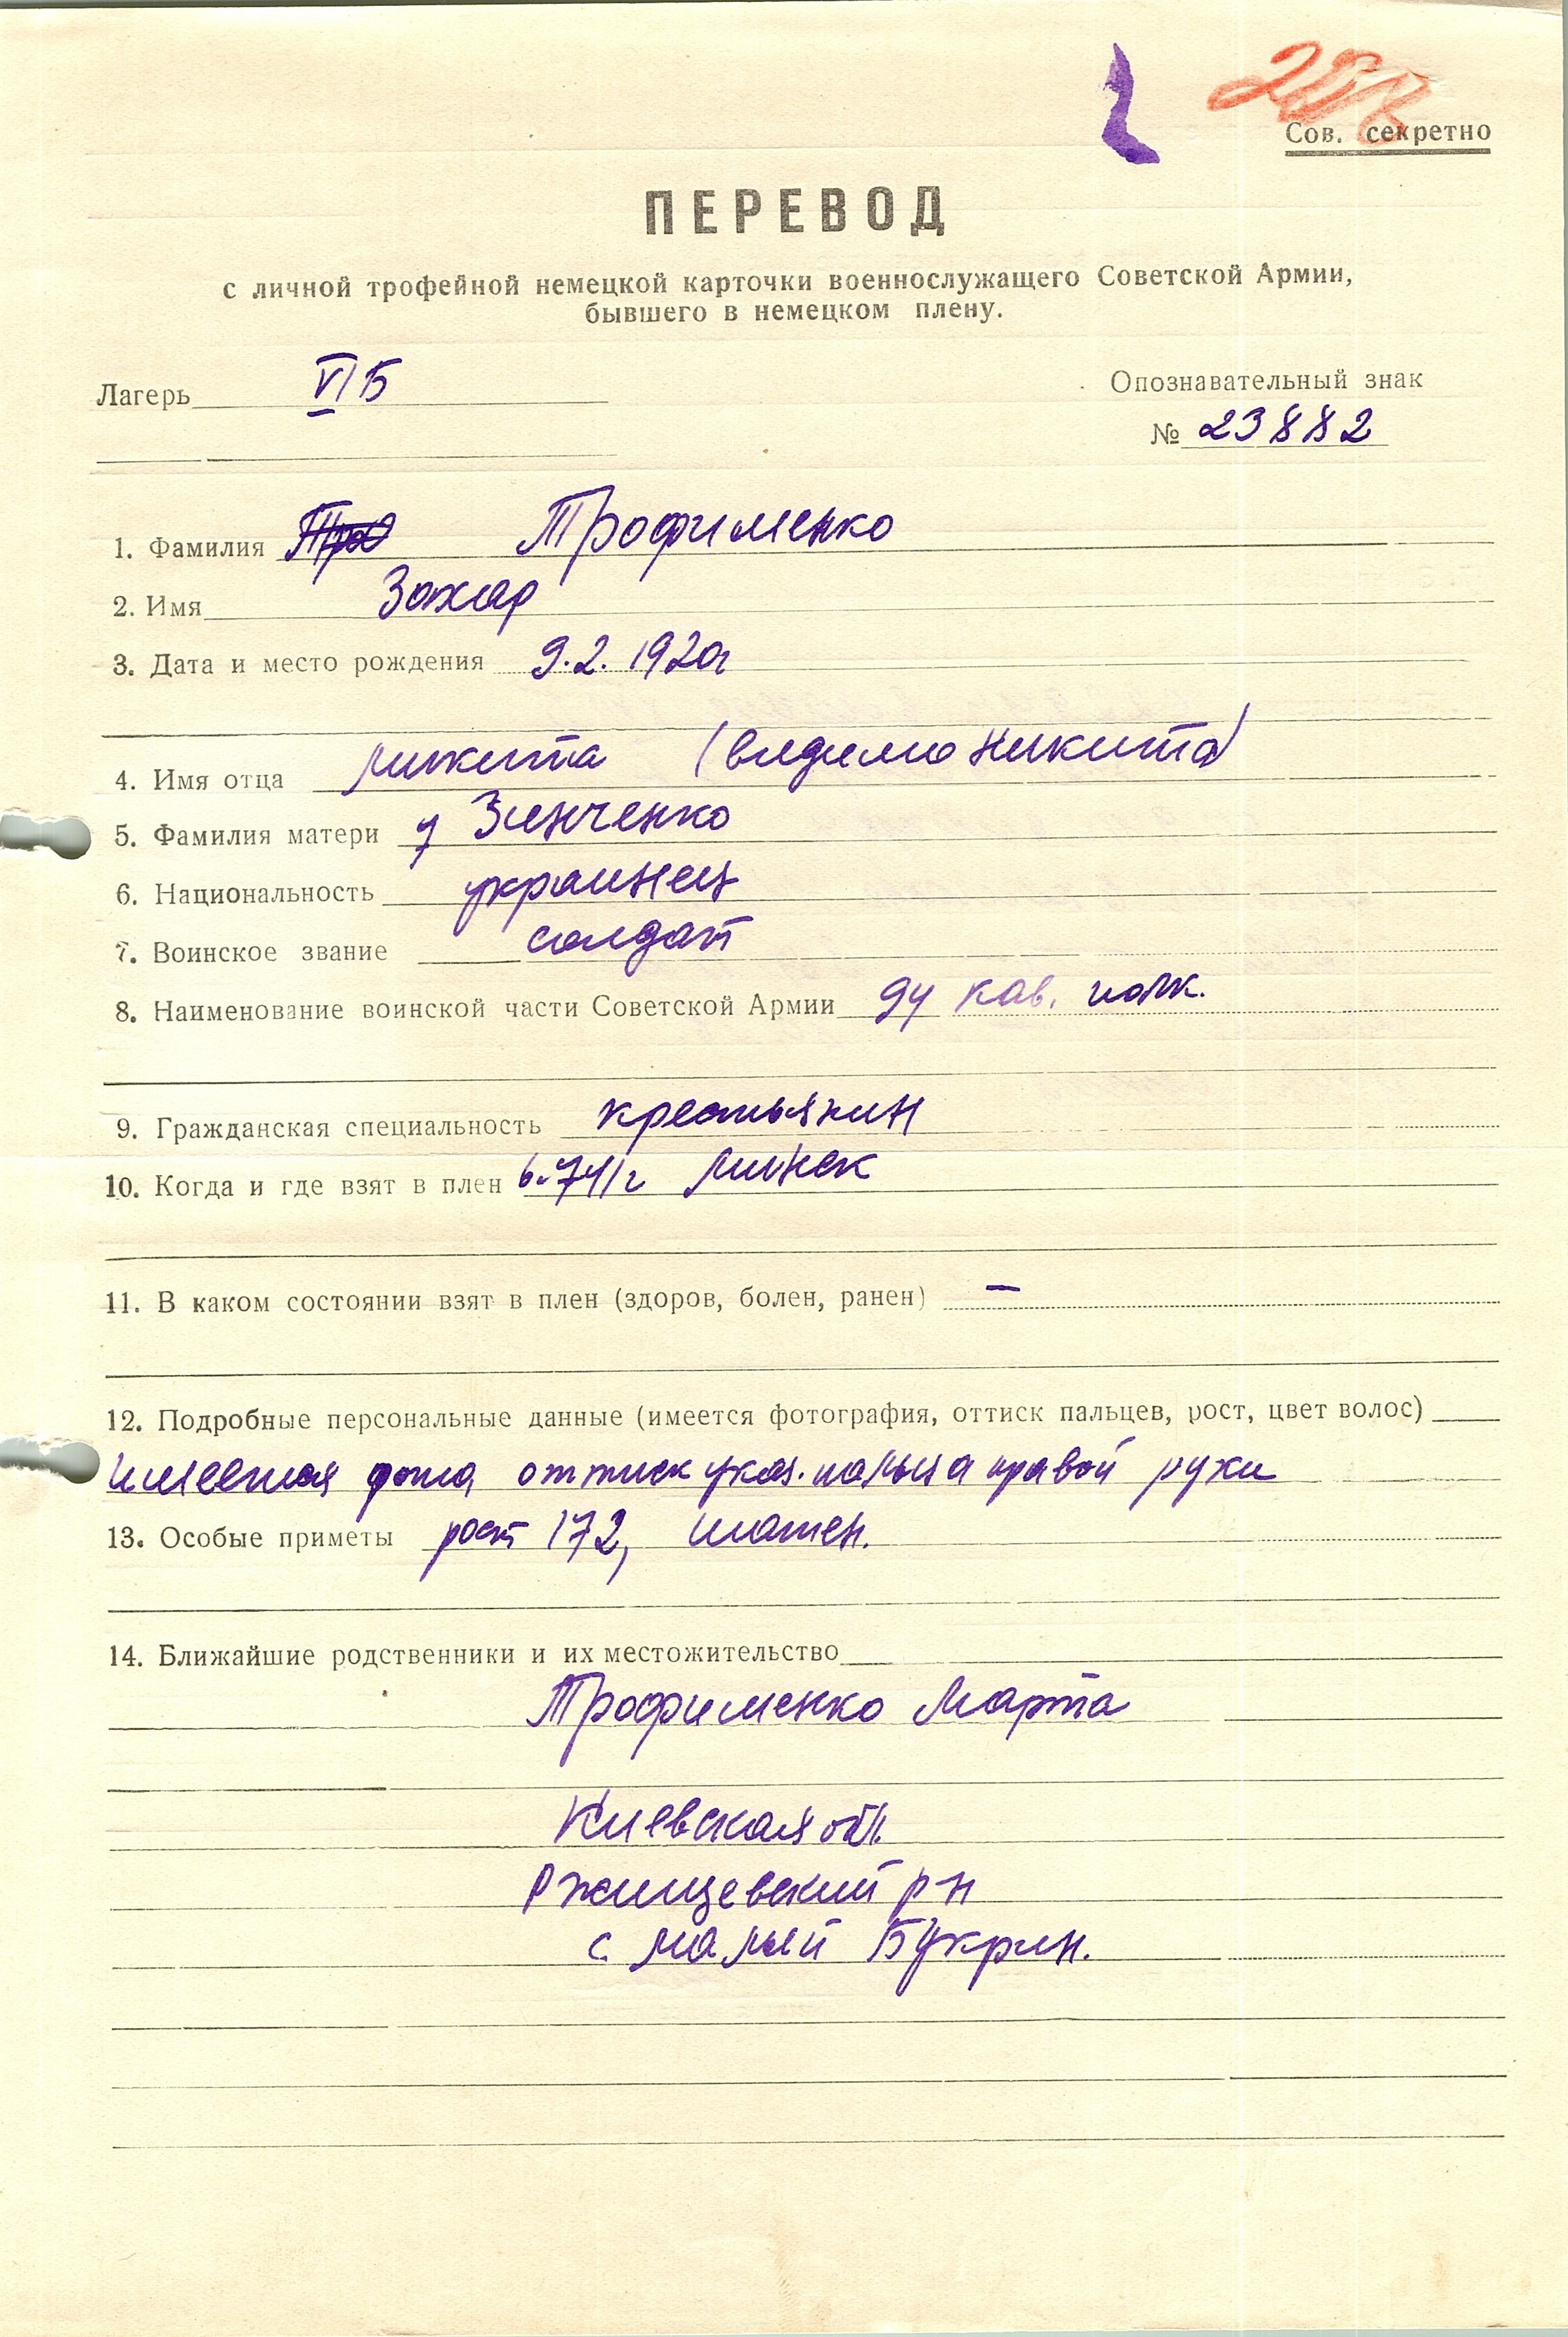 Сов. секретно
ПЕРЕВОД
с личной трофейной немецкой карточки военнослужащего Советской Армии,
бывшего в немецком плену.
Лагерь VI Б
Опознавательный знак
№ 23882
1. Фамилия Трофименко
2. Имя Захар
3. Дата и место рождения 9.2. 1920г
4. Имя отца Микита (видимо Никита)
5. Фамилия матери у Зинченко
6. Национальность украинец
7. Воинское звание солдат
8. Наименование воинской части Советской Армии 94 кав. полк.
9. Гражданская специальность крестьянин
10. Когда и где взят в плен 6.741г Минск
11. В каком состоянии взят в плен (здоров, болен, ранен) —
12. Подробные персональные данные (имеется фотография, оттиск пальцев, рост, цвет волос)
имеется фото, оттиск указ. пальца правой руки
13. Особые приметы рост 172, шатен.
14. Ближайшие родственники и их местожительство
Трофименко Марта
Киевская обл.
Ржищевский р н
с. малый Букрин.